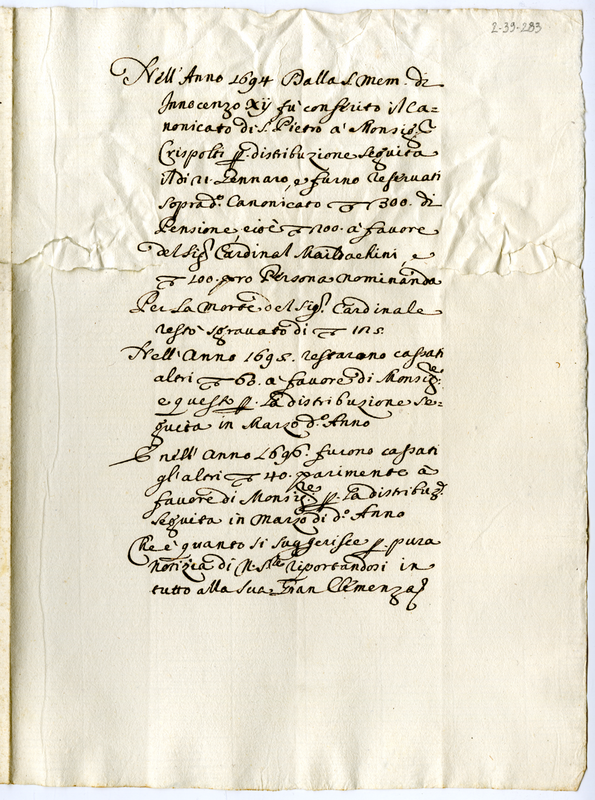 2-39-283
Nell'Anno 1694 Dalla S. Mem. di
Innocenzo Xij fu conferito il Ca=
nonicato di S. Pietro a Monsig.re
Crispolti p. distribuzione seguita
il di 21. Gennaro, e furno reservati
sopra d.o Canonicato 300. di
Pensione cioè 200. a favore
del Sig.r Cardinal Maidalchini, e
100. pro Persona nominanda
Per La Morte del Sig.r Cardinale
restò sgravato di
Nell'Anno 1695. restarono cassati
altri 60. a favore di Monsig.re
e questo p. La distribuzione se=
guita in Marzo d.o Anno
E nell'anno 1696. furono cassati
gl'altri 40. parimente a
favore di Monsig.re p. La distribuz.e
seguita in Marzo di d.o Anno
Che è quanto si suggerisce p. pura
notizia di N. S.re riportandosi in
tutto alla sua Gran Clemenza